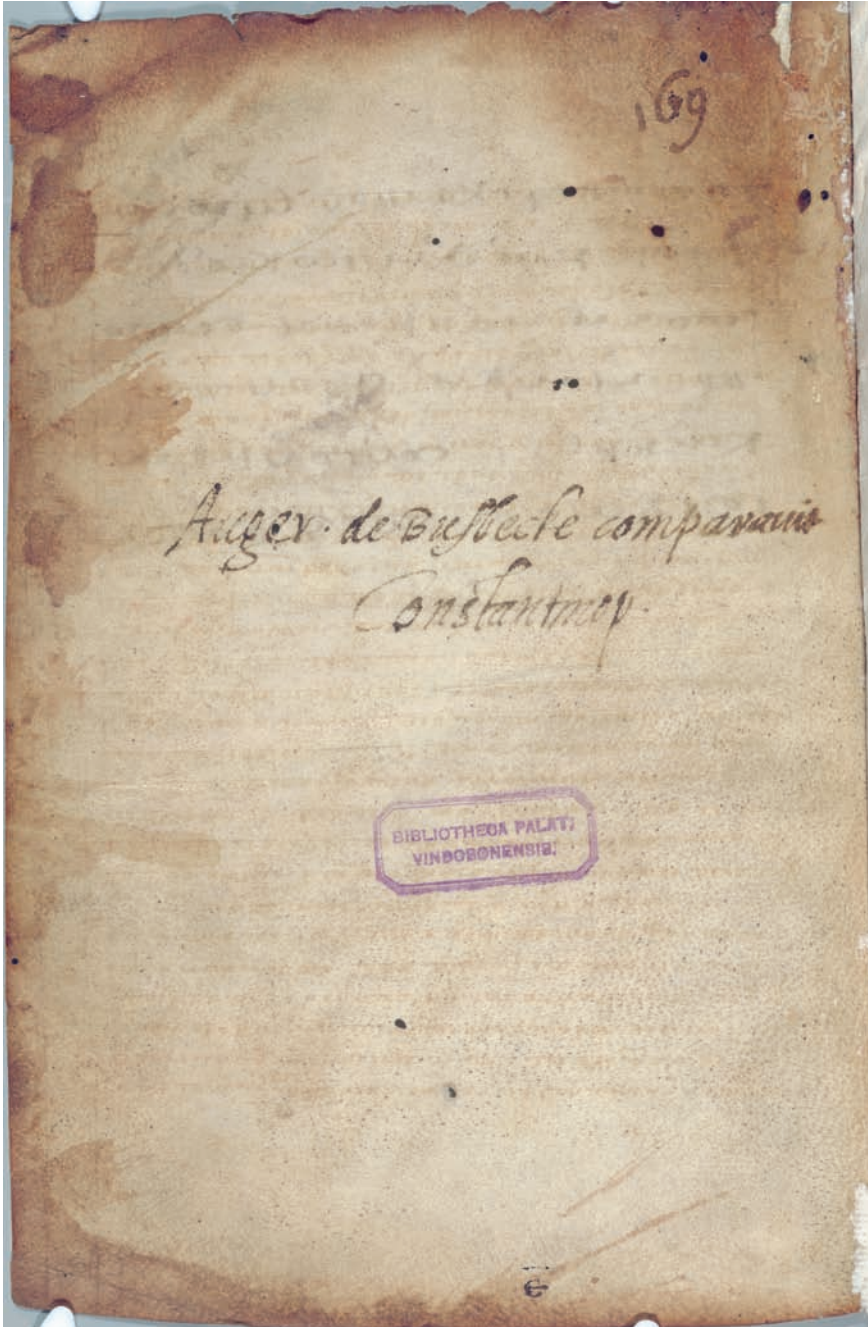 169
Auger. de Busbecke comparauit
Constantinop.
BIBLIOTHECA PALAT.
VINDOBONENSIS.